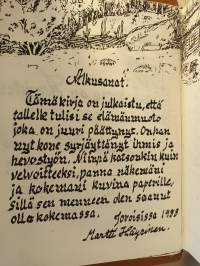 Alkusanat.
Tämä kirja on julkaistu, että
talletle tulisi se elämänmuoto
joka on juuri päättynyt. Onhan
nyt kone syrjäyttänyt ihmis ja
hevostyön. Niinpä katsoinkin kuin
velvoitteeksi, panna näkemäni
ja kokemani kuvina paperille,
sillä sen menneen olen saanut
olla kokemassa. Joroisissa 1983
Martti Häyrinen.